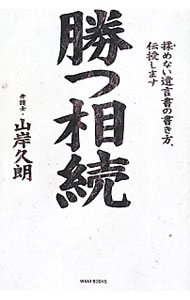 揉めない遺言書の書き方、
伝授します
勝つ相続
弁護士・山岸久朗
WANI BOOKS